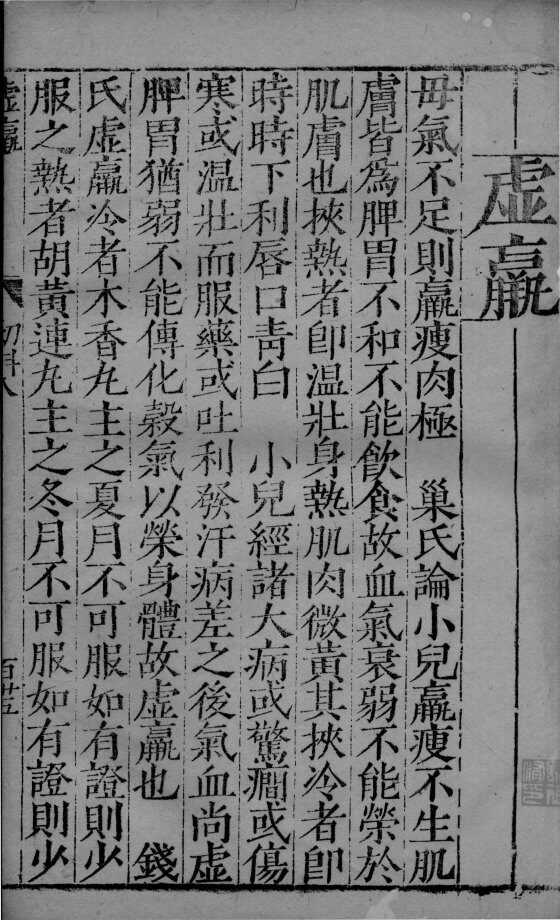 虚羸
毋氣不足則羸瘦肉極　巢氏論小兒羸瘦不生肌
膚皆爲脾胃不和不能飲食故血氣衰弱不能榮於
肌膚也挾熱者卽温壯身熱肌肉微黃其挾冷者卽
時時下利唇口靑白　小兒經諸大病或驚癇或傷
寒或温壯而服藥或吐利發汗病差之後氣血尚虛
脾胃猶弱不能傳化穀氣以榮身體故虛羸也　錢
氏虛羸冷者木香丸主之夏月不可服如有證則少
服之熱者胡黃連丸主之冬月不可服如有證則少
虛羸
幼科八
百廿五